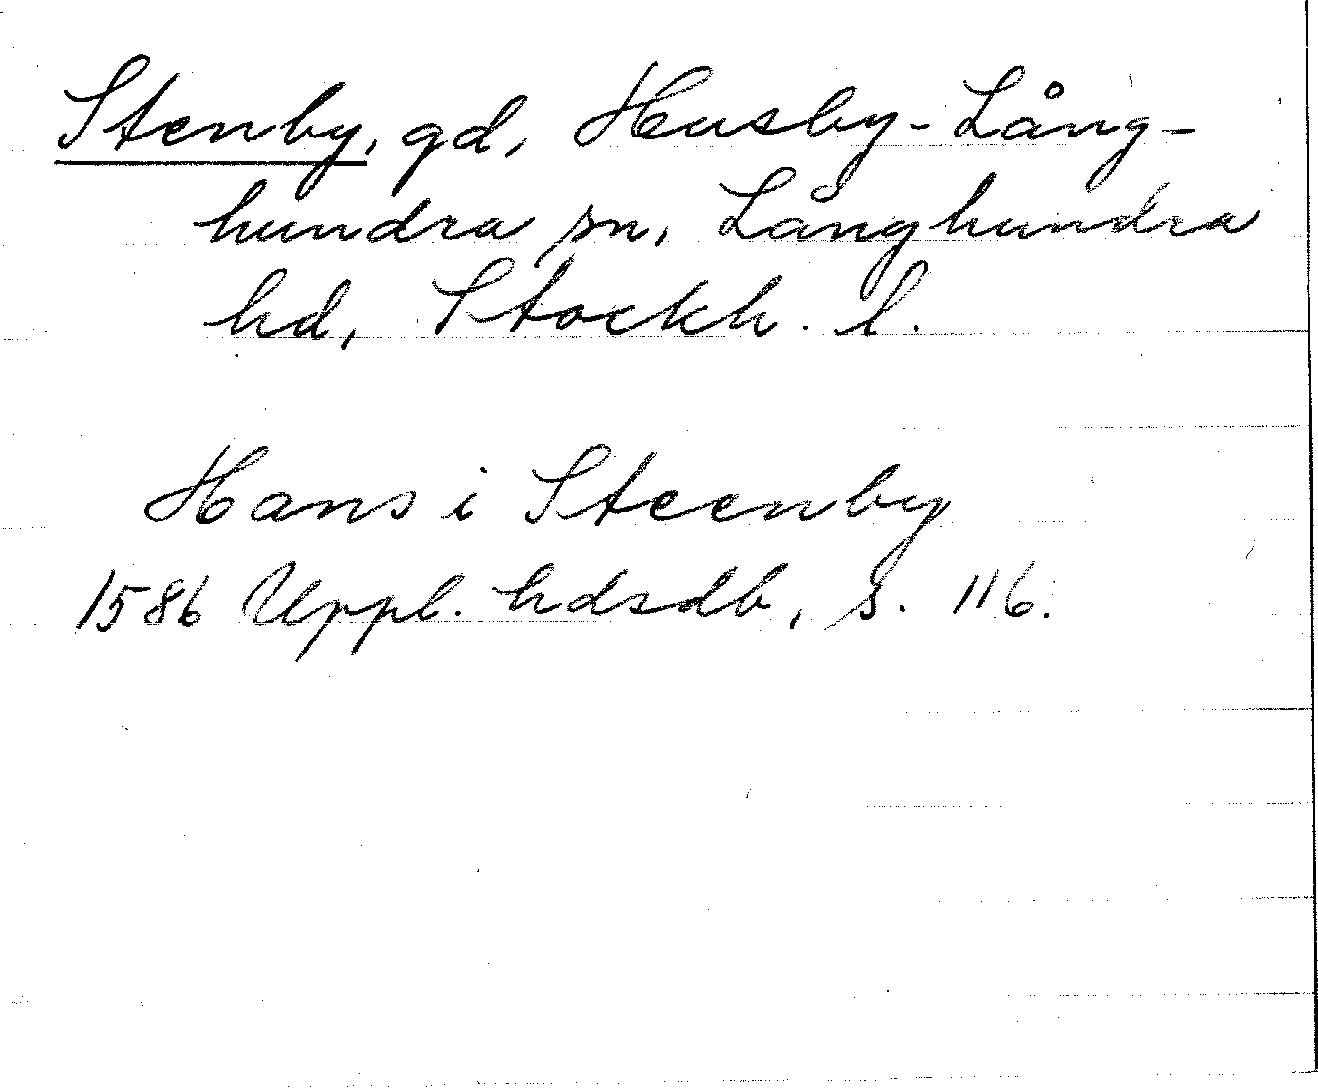 Stenby, gd, Husby-Lång-
hundra sn, Långhundra
hd, Stockh. l.
Hans i Steenby
1586 Uppl. hdsdb, s. 116.